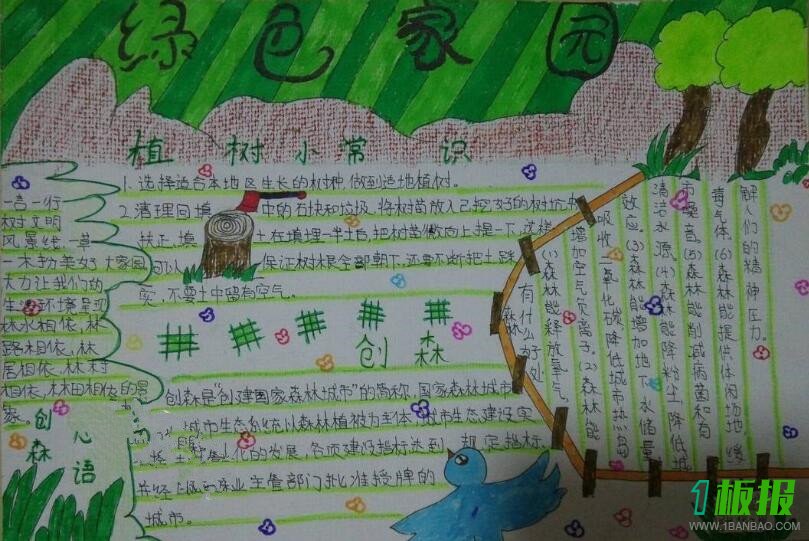 绿色家园
植树小常识
1.选择适合本地区生长的树种,做到适地植树。
2.清理回填 中的石块和垃圾,将树苗放入已挖好的树坑
扶正,填 土,在填埋一半土后,把树苗微向上提一下,这样
可以 保证树根全部朝下,还要不断把土踩
实,不要土中留有空气。
一言一行
树文明
风景线,一草
一木扮美好大家园
大力让我们的
生活环境呈现
林水相依,林
路相依,林
居相依,林村
相依,林田相依的
家。
创森
心语
创森
创森是“创建国家森林城市”的简称,国家森林城市
城市生态系统以森林植被为主体,城市生态建设实
化的发展,各项建设指标达到 规定指标
并经 林业主管部门批准授牌的
城市。
森林
有什么好处
(1)森林能释放氧气,
增加空气负离子。(2)森林能
吸收二氧化碳,降低城市热岛
效应。(3)森林能增加地下水储量,
清洁水源。(4)森林能降粉尘,降低城
市噪音。(5)森林能削减病菌和有
毒气体。(6)森林能提供休闲场地,缓
解人们的精神压力。
1板报
WWW.1BANBAO.COM